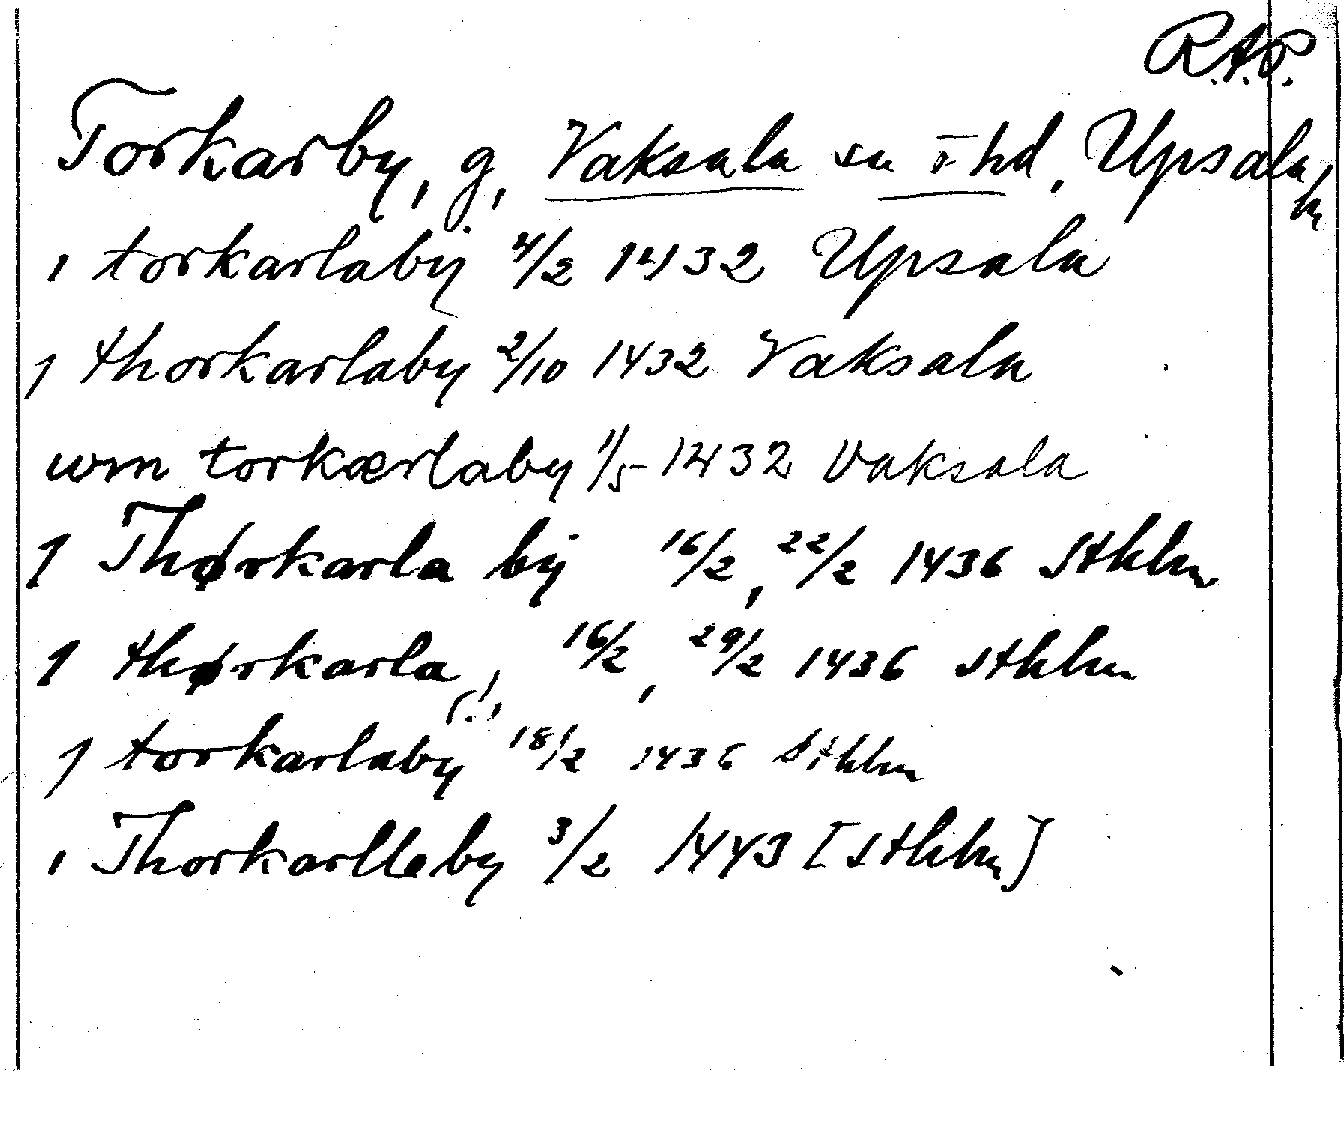 R.A.P.
Torkarby, g, Vaksala sn o hd, Upsala
ln
i torkarlaby 4/2 1432 Upsala
j thorkarlaby 2/10 1432 Vaksala
wm torkærlaby 1/5 1432 Vaksala
j Thørkarla bÿ 16/2, 22/2 1436 Sthlm
j thørkarla (!), 16/2, 29/2 1436 Sthlm
j torkarlaby 18/2 1436 Sthlm
i Thorkarlleby 3/2 1443 [Sthlm]